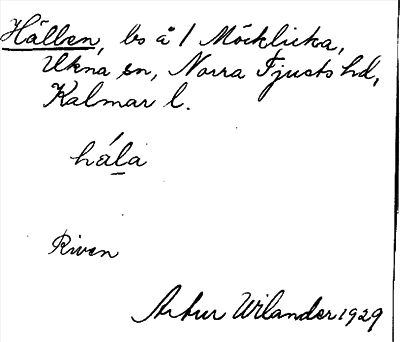 Hällen, bs å 1 Möcklicka,
Ukna sn, Norra Tjusts hd,
Kalmar l.
hála
Riven
Artur Wilander 1929